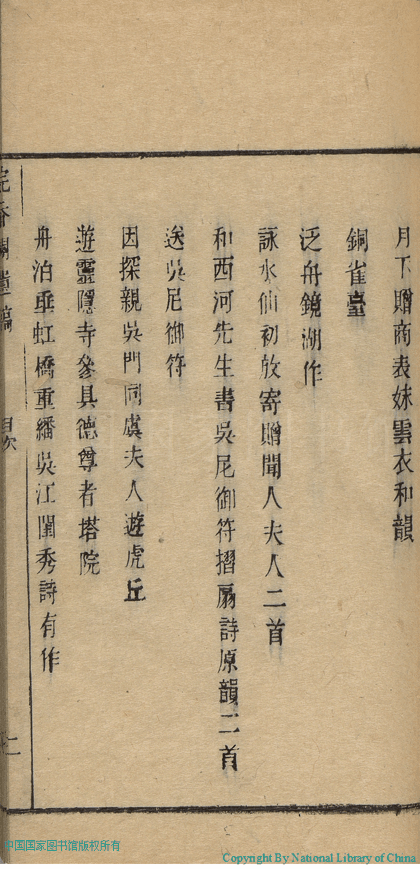 月下贈商表妹雲衣和韻
銅雀臺
泛舟鏡湖作
詠水仙初放寄贈聞人夫人二首
和西河先生書吳尼御符摺扇詩原韻二首
送吳尼御符
因探親吳門同虞夫人遊虎丘
遊靈隱寺參具德尊者塔院
舟泊垂虹橋重繙吳江閨秀詩有作
目次
二
中国国家图书馆版权所有
Copyright By National Library of China